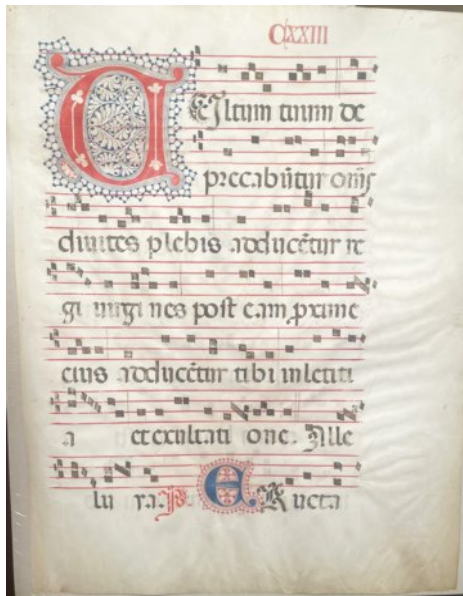 CXXIII
VEJltum tuum de
precabūtur om̄s
diuites plebis adducētur re
gi uirgi nes post eam proxime
eius adducētur tibi inletiti
a et exultati one. Alle
lu ya. P. ERucta